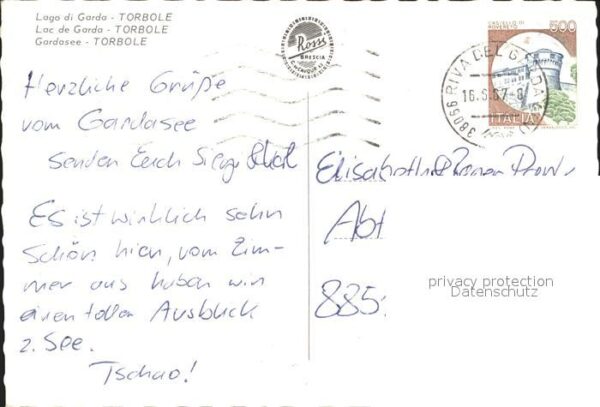 Lago di Garda - TORBOLE
Lac de Garda - TORBOLE
Gardasee - TORBOLE
Rossi
BRESCIA
CASTELLO DI
ROVERETO
500
ITALIA
38066 RIVA DEL GARDA
16.6.87-8
Herzliche Grüße
vom Gardasee
senden Euch
Es ist wirklich sehr
schön hier, vom Zim-
mer aus haben wir
einen tollen Ausblick
z. See.
Tschao!
Abt
885.
privacy protection
Datenschutz